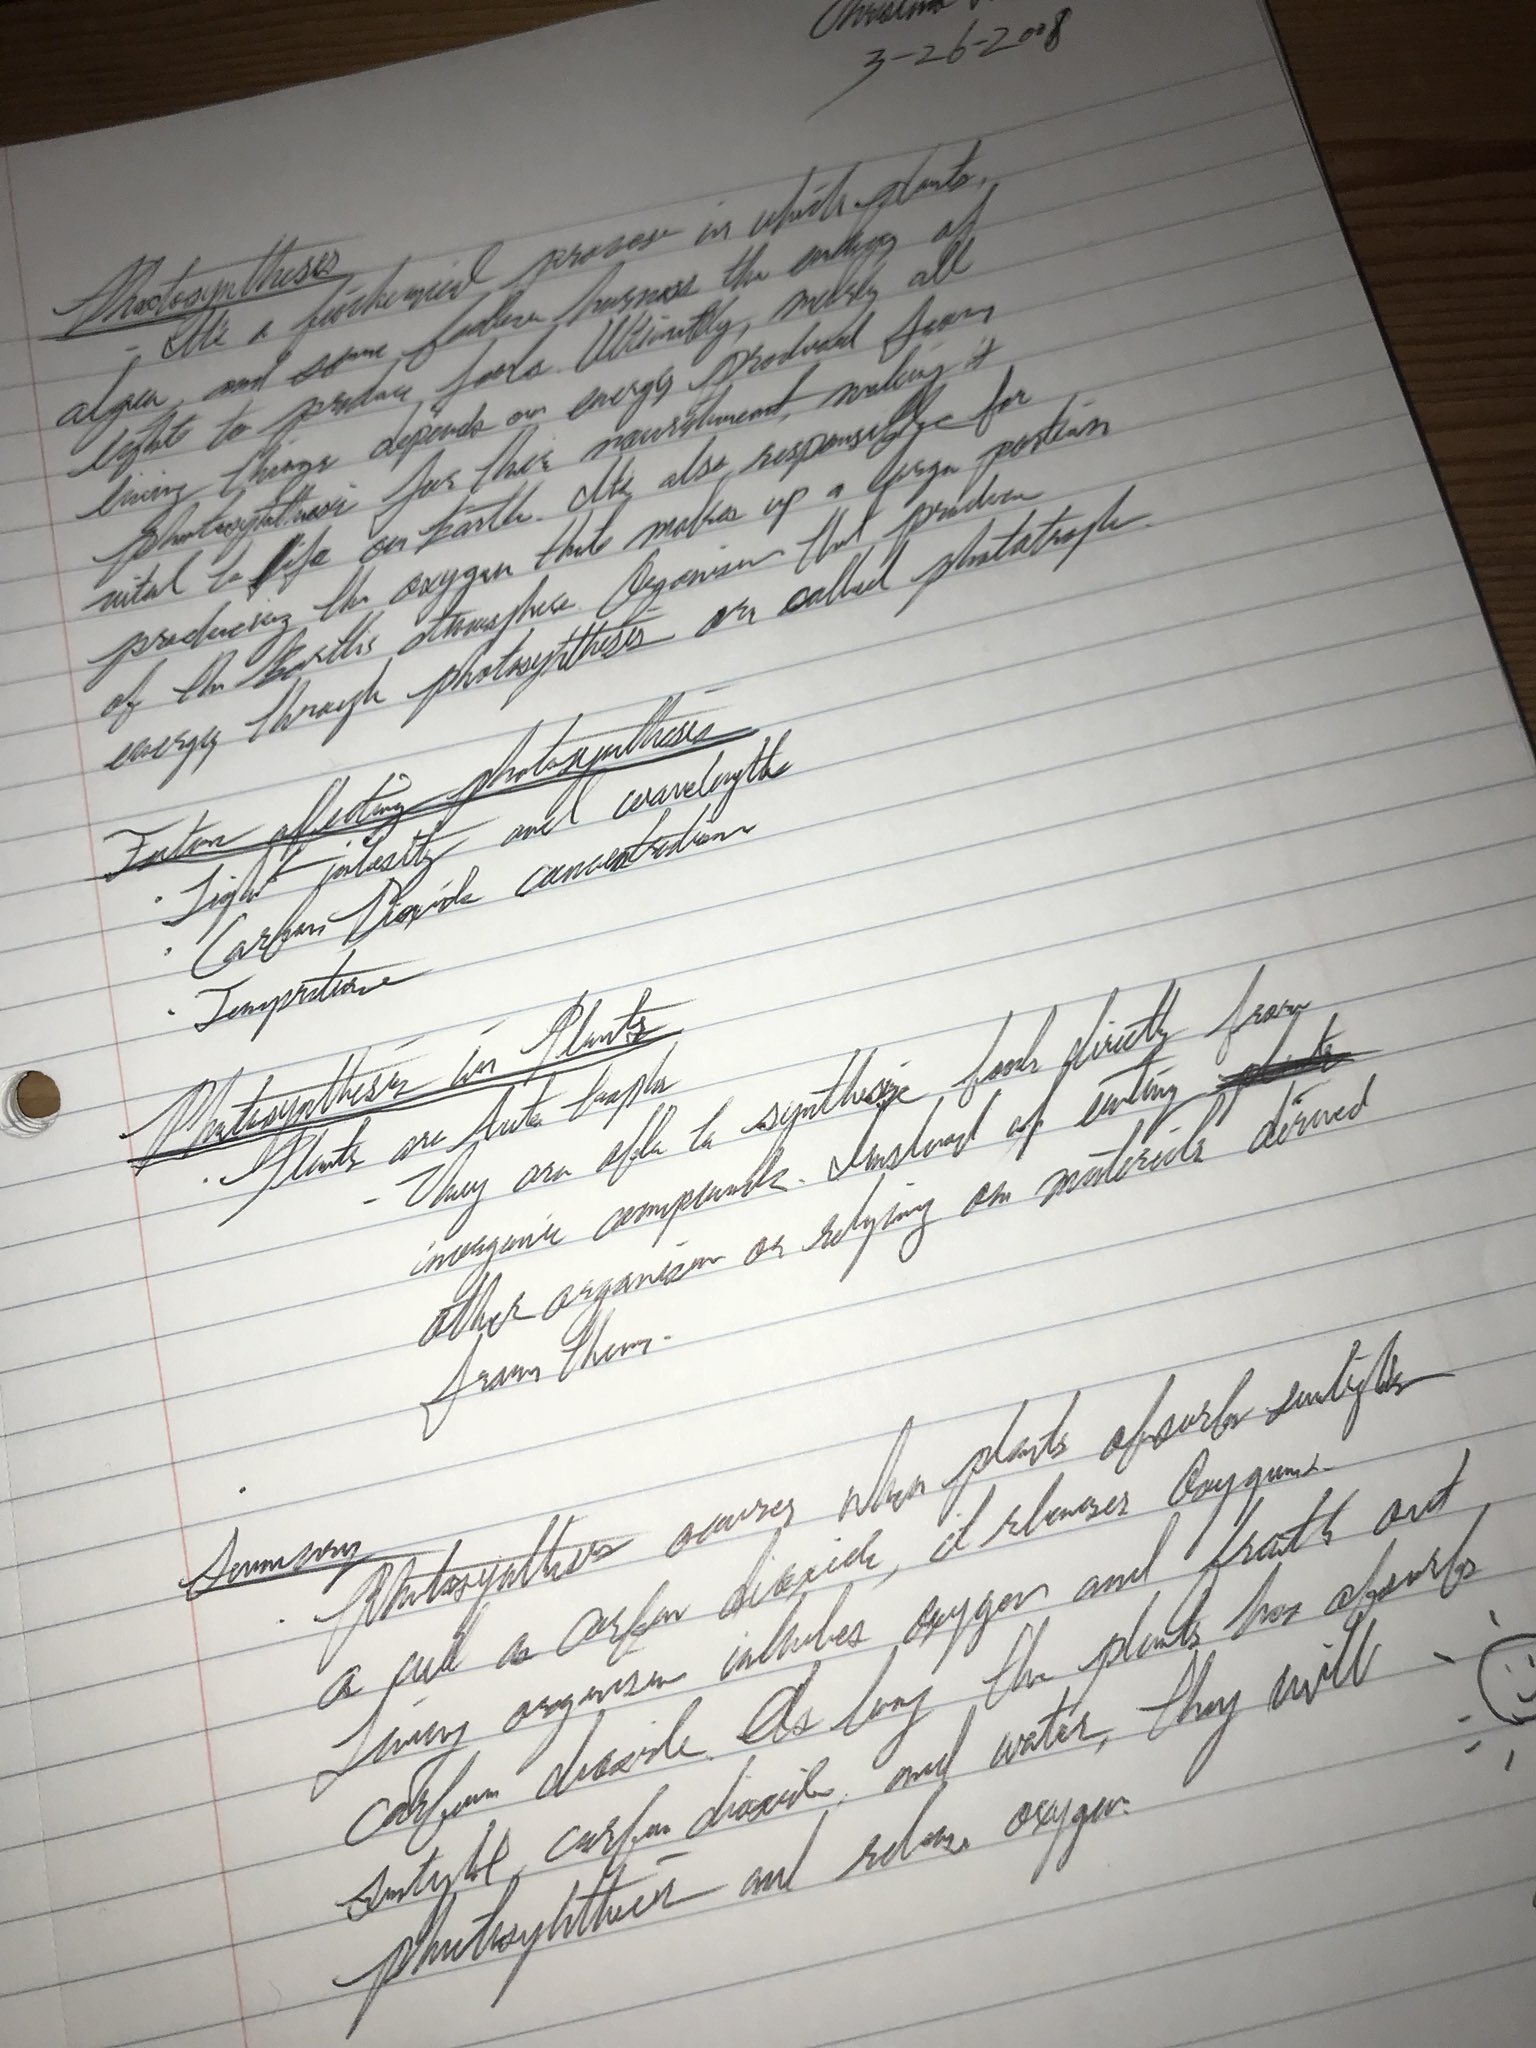 Christina
3-26-2008
Photosynthesis
- It's a biochemical process in which plants,
algea, and some harness the energy of
light to produce food. Ultimitly, nearly all
living things depends on energy produced from
photosynthesis for their nourishment, making it
vital to life on Earth. It's also responsible for
producing the oxygen that makes up a large portion
of the Earth's atmosphere. Organism that produce
energy through photosynthesis are called
Factors affecting photosynthesis
· Light intesity and wavelength
· Carbon Dioxide concentration
· Temprature
Photosynthesis in Plants
· Plants are
- They are able to synthesize foods directly from
inorganic compounds. Instead of eating
other organism or relying on materials derived
from them.
·
Summary
· Photosynthesis occurs when plants absorbs sunlight
as well as carbon dioxide, it releases Oxygen.
Living organism inhales oxygen and breath out
carbon dioxide. As long the plants has absorbs
sunlight, carbon dioxide, and water, they will
photosynthesis and release oxygen.